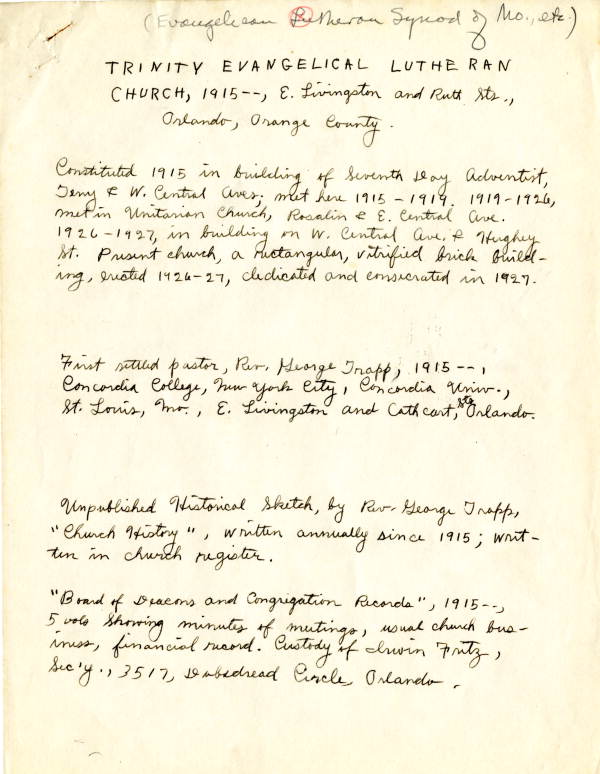 (Evangelican Lutheran Synod of Mo., etc.)
TRINITY EVANGELICAL LUTHERAN
CHURCH, 1915--, E. Livingston and Ruth Sts.,
Orlando, Orange County.
Constituted 1915 in building of Seventh Day Adventist,
Terry & W. Central Aves; met here 1915-1919. 1919-1926,
met in Unitarian Church, Rosalin & E. Central Ave.
1926-1927, in building on W. Central Ave. & Hughey
St. Present church, a rectangular, vitrified brick build-
ing, erected 1926-27, dedicated and consecrated in 1927.
First settled pastor, Rev. George Trapp, 1915--,
Concordia College, New York City, Concordia Univ.,
St. Louis, Mo., E. Livingston and Cathcart, Sts. Orlando.
Unpublished Historical Sketch, by Rev. George Trapp,
"Church History", written annually since 1915; writ-
ten in church register.
"Board of Deacons and Congregation Records", 1915--,
5 vols showing minutes of meetings, usual church bus-
iness, financial record. Custody of Irwin Fritz,
Sec'y., 3517, Dubsdread Circle, Orlando.